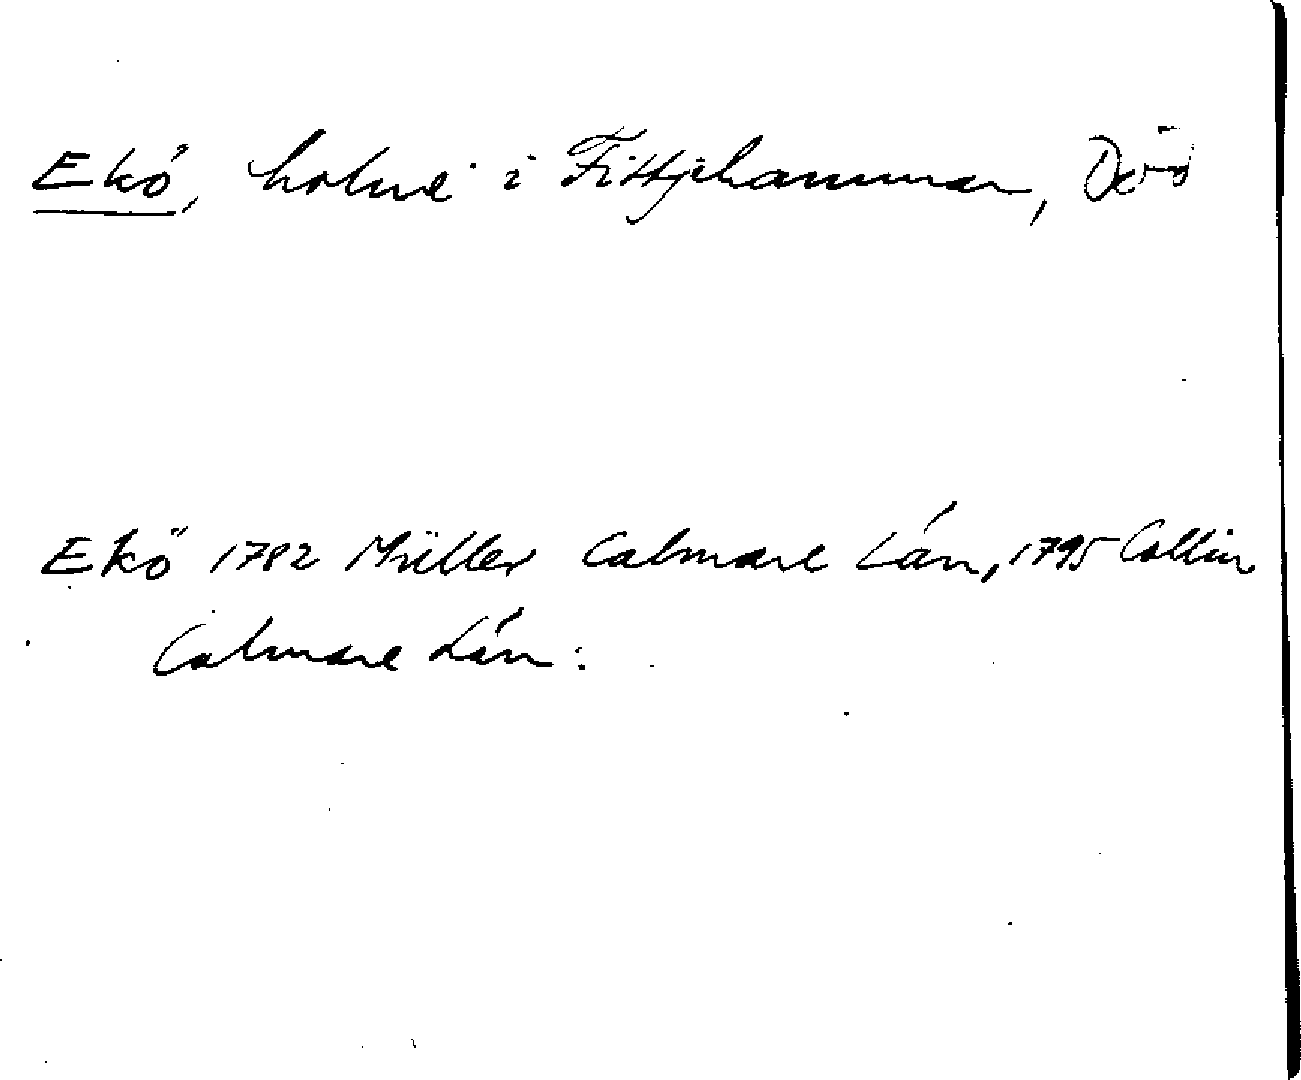 Ekö, holme i Fittjehammar, Döö
Ekö 1782 Müller Calmare Län, 1795 Collin
Calmare Län.